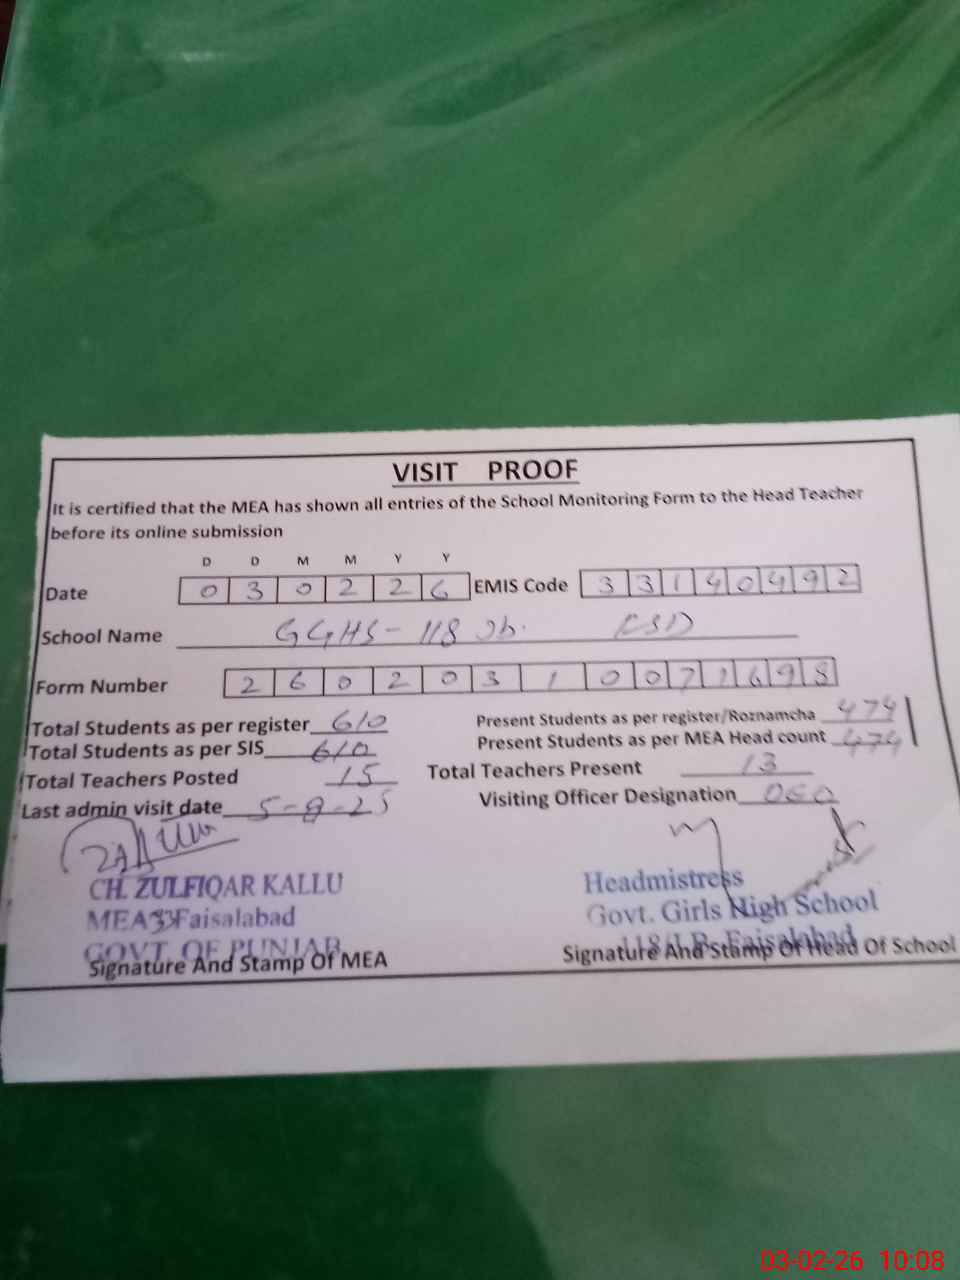 VISIT PROOF
It is certified that the MEA has shown all entries of the School Monitoring Form to the Head Teacher
before its online submission
D D M M Y Y
Date 0 3 0 2 2 6 EMIS Code 3 3 1 4 0 4 9 2
School Name GGHS - 118 Jb. FSD
Form Number 2 6 0 2 0 3 1 0 0 7 1 6 9 8
Total Students as per register 610 Present Students as per register/Roznamcha 474
Total Students as per SIS 610 Present Students as per MEA Head count 474
Total Teachers Posted 15 Total Teachers Present 13
Last admin visit date 5-8-25 Visiting Officer Designation
CH. ZULFIQAR KALLU Headmistress
MEA33Faisalabad Govt. Girls High School
GOVT. OF PUNJAB 118/J.B. Faisalabad
Signature And Stamp Of MEA Signature And Stamp Of Head Of School
03-02-26 10:08